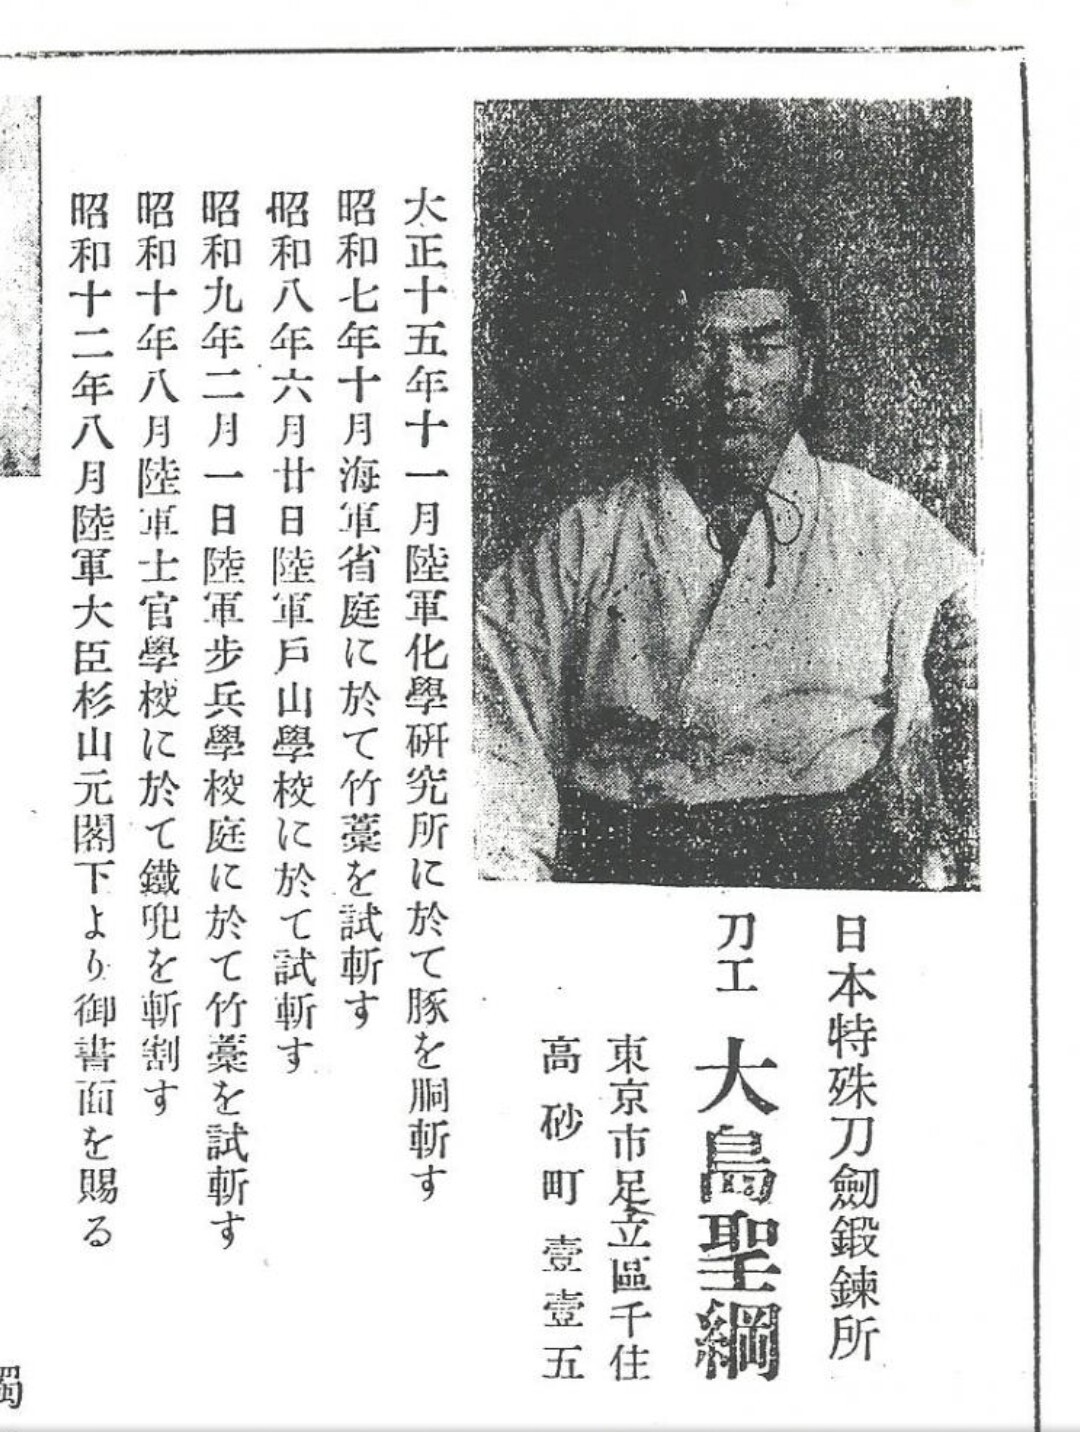 日本特殊刀劒鍛鍊所
刀工 大島聖綱
東京市足立區千住
高砂町壹壹五
大正十五年十一月陸軍化學研究所に於て豚を胴斬す
昭和七年十月海軍省庭に於て竹藁を試斬す
昭和八年六月廿日陸軍戶山學校に於て試斬す
昭和九年二月一日陸軍步兵學校庭に於て竹藁を試斬す
昭和十年八月陸軍士官學校に於て鐵兜を斬割す
昭和十二年八月陸軍大臣杉山元閣下より御書面を賜る